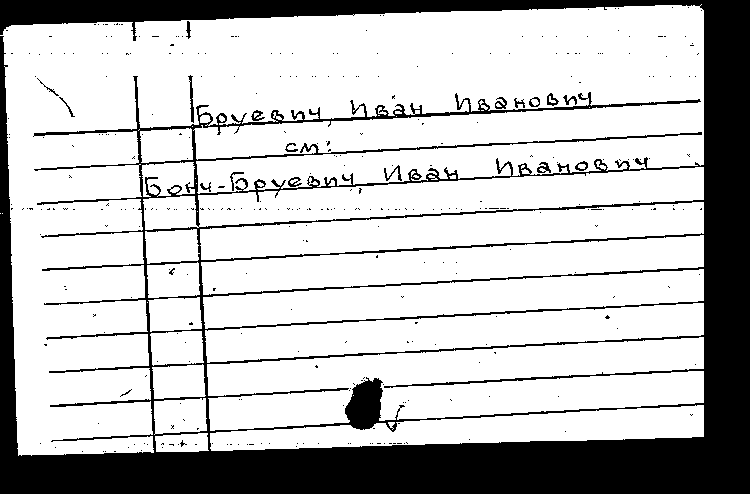 Бруевич, Иван Иванович
см:
Бонч-Бруевич, Иван Иванович